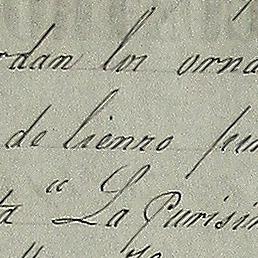 rdan los orna
de lienzo pu
ta "La Purisi